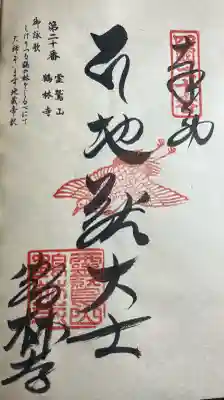 奉納
地蔵大士
鶴林寺
第二十番
霊鷲山
鶴林寺
御詠歌
しげりつる鶴の林をしるべにて
大師ぞいます地蔵帝釈